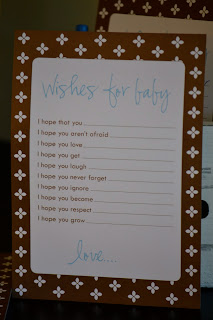 wishes for baby
I hope that you
I hope you aren't afraid
I hope you love
I hope you get
I hope you laugh
I hope you never forget
I hope you ignore
I hope you become
I hope you respect
I hope you grow
love....